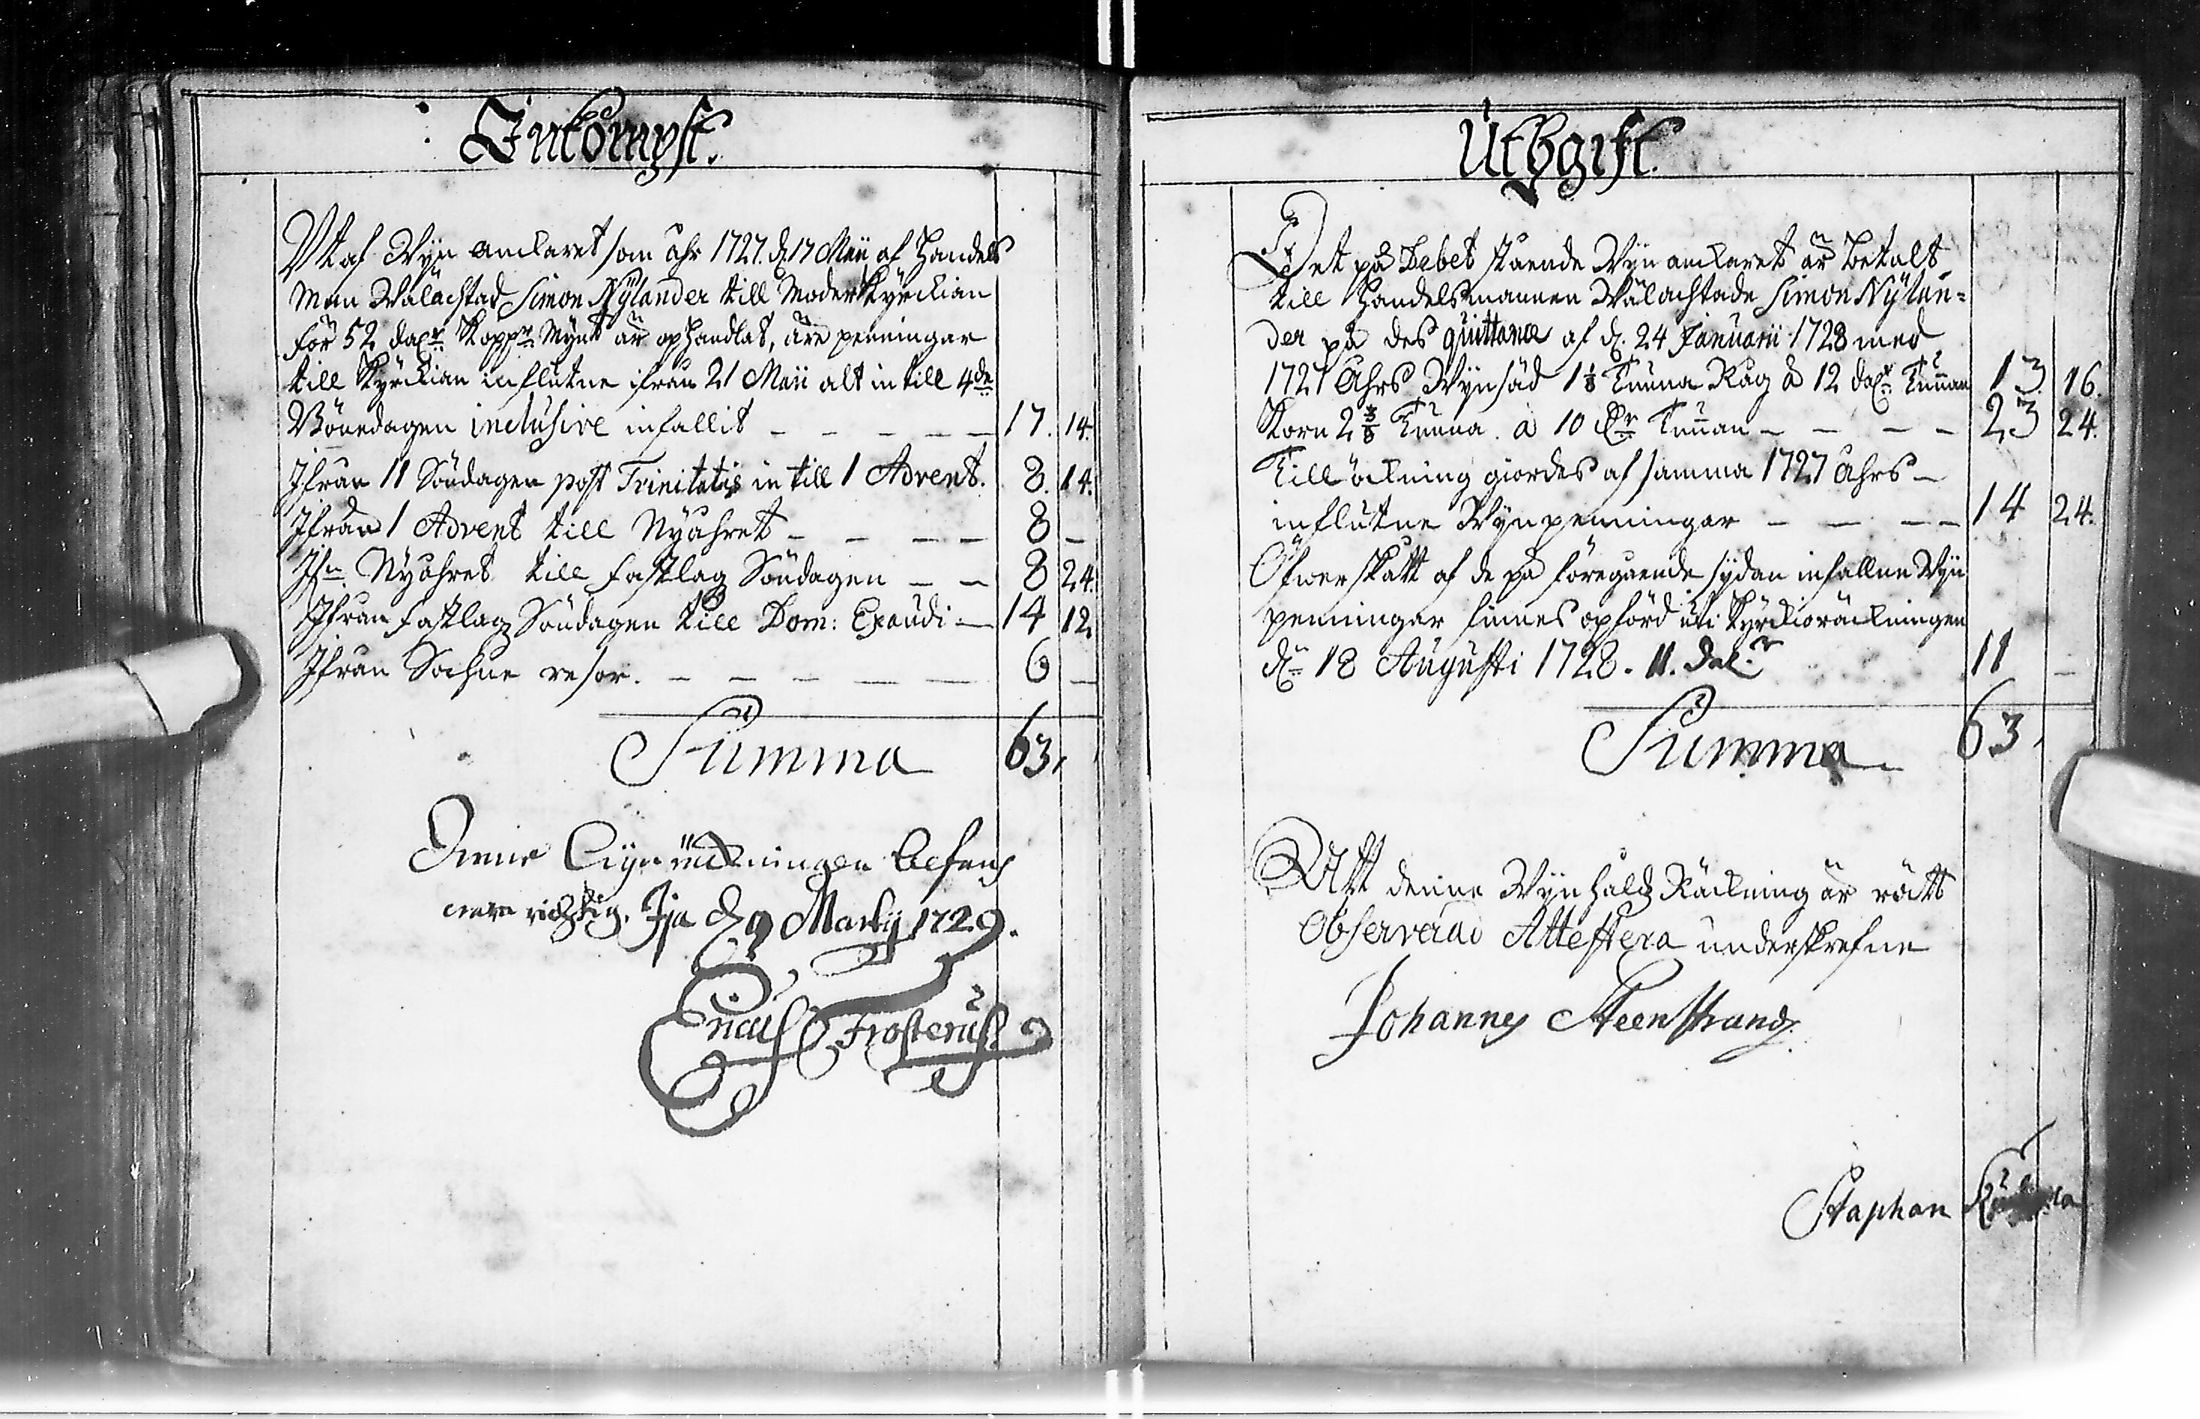 Inkompst.
Vt af Wÿn anckaret som åhr 1727. d 17 Maii af Handels
Man Wälachtad Simon Nÿlander till Moderkÿrckian
för 52 dalr Koppr Mynt är ophandlat, äre penningar
till Kÿrckian influtne ifrån 21 Maii alt in till 4de
Bönedagen inclusive infallit — — — — — 17. 14.
Ifrån 11 Söndagen post Trinitatis in till 1 Advent. 8. 14.
Ifrån 1 Advent till Nÿåhret — — — — 8 —
Ifn Nÿåhret till Fastlag Söndagen — — 8 24.
Ifrån Fastlag Söndagen till Dom: Exaudi — 14 12
Ifrån Sochne resor. — — — — — 6 —
Summa 63,
Denne räckningen befans
vara richtig. Ijo d 9 Martij 1729.
Ericus Frosterus
Utbgift.
Det på Debet stående Wÿn anckaret är betalt
till Handelsmannen Wälachtade Simon Nÿlan=
der på des quittance af d. 24 Januarii 1728 med
1727 Åhrs Wÿnsäd 1 1/8 Tunna Råg â 12 dalr Tunnan 13 16.
Korn 2 3/8 Tunna à 10 dr Tunnan — — — — 23 24.
Till öckning giordes af samma 1727 Åhrs —
influtne Wÿnpenningar — — — — 14 24.
Öfwerskått af de på föregående sÿdan infallne Wÿn
penningar finnes opförd uti Kÿrckioräckningen
dn 18 Augusti 1728. 11. dal:r 11 —
Summa 63,
Att denne Wÿnhaldz Räckning är rätt
Observerad Attestera underskrefne
Johannes Steenstrand
Staphan